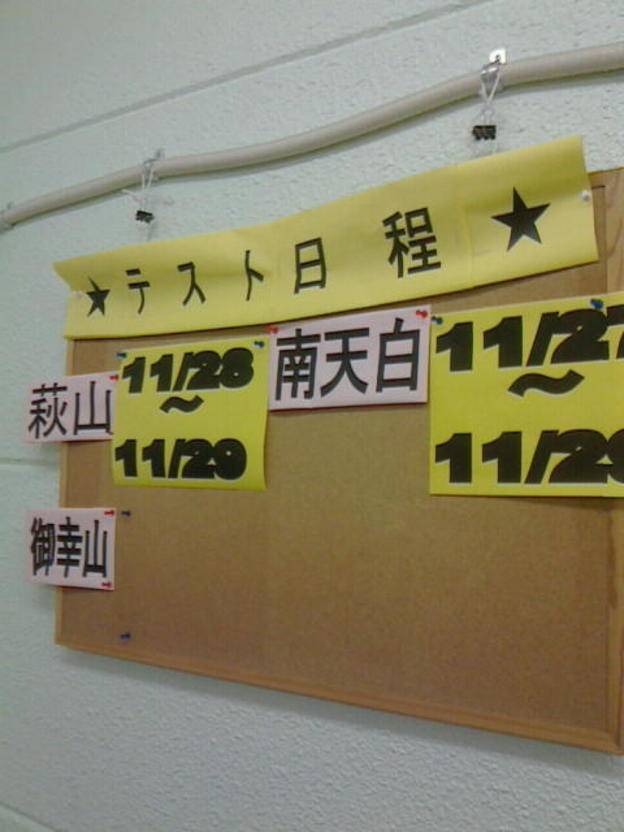 ★テスト日程★
萩山
11/28
〜
11/29
南天白
11/27
〜
11/29
御幸山